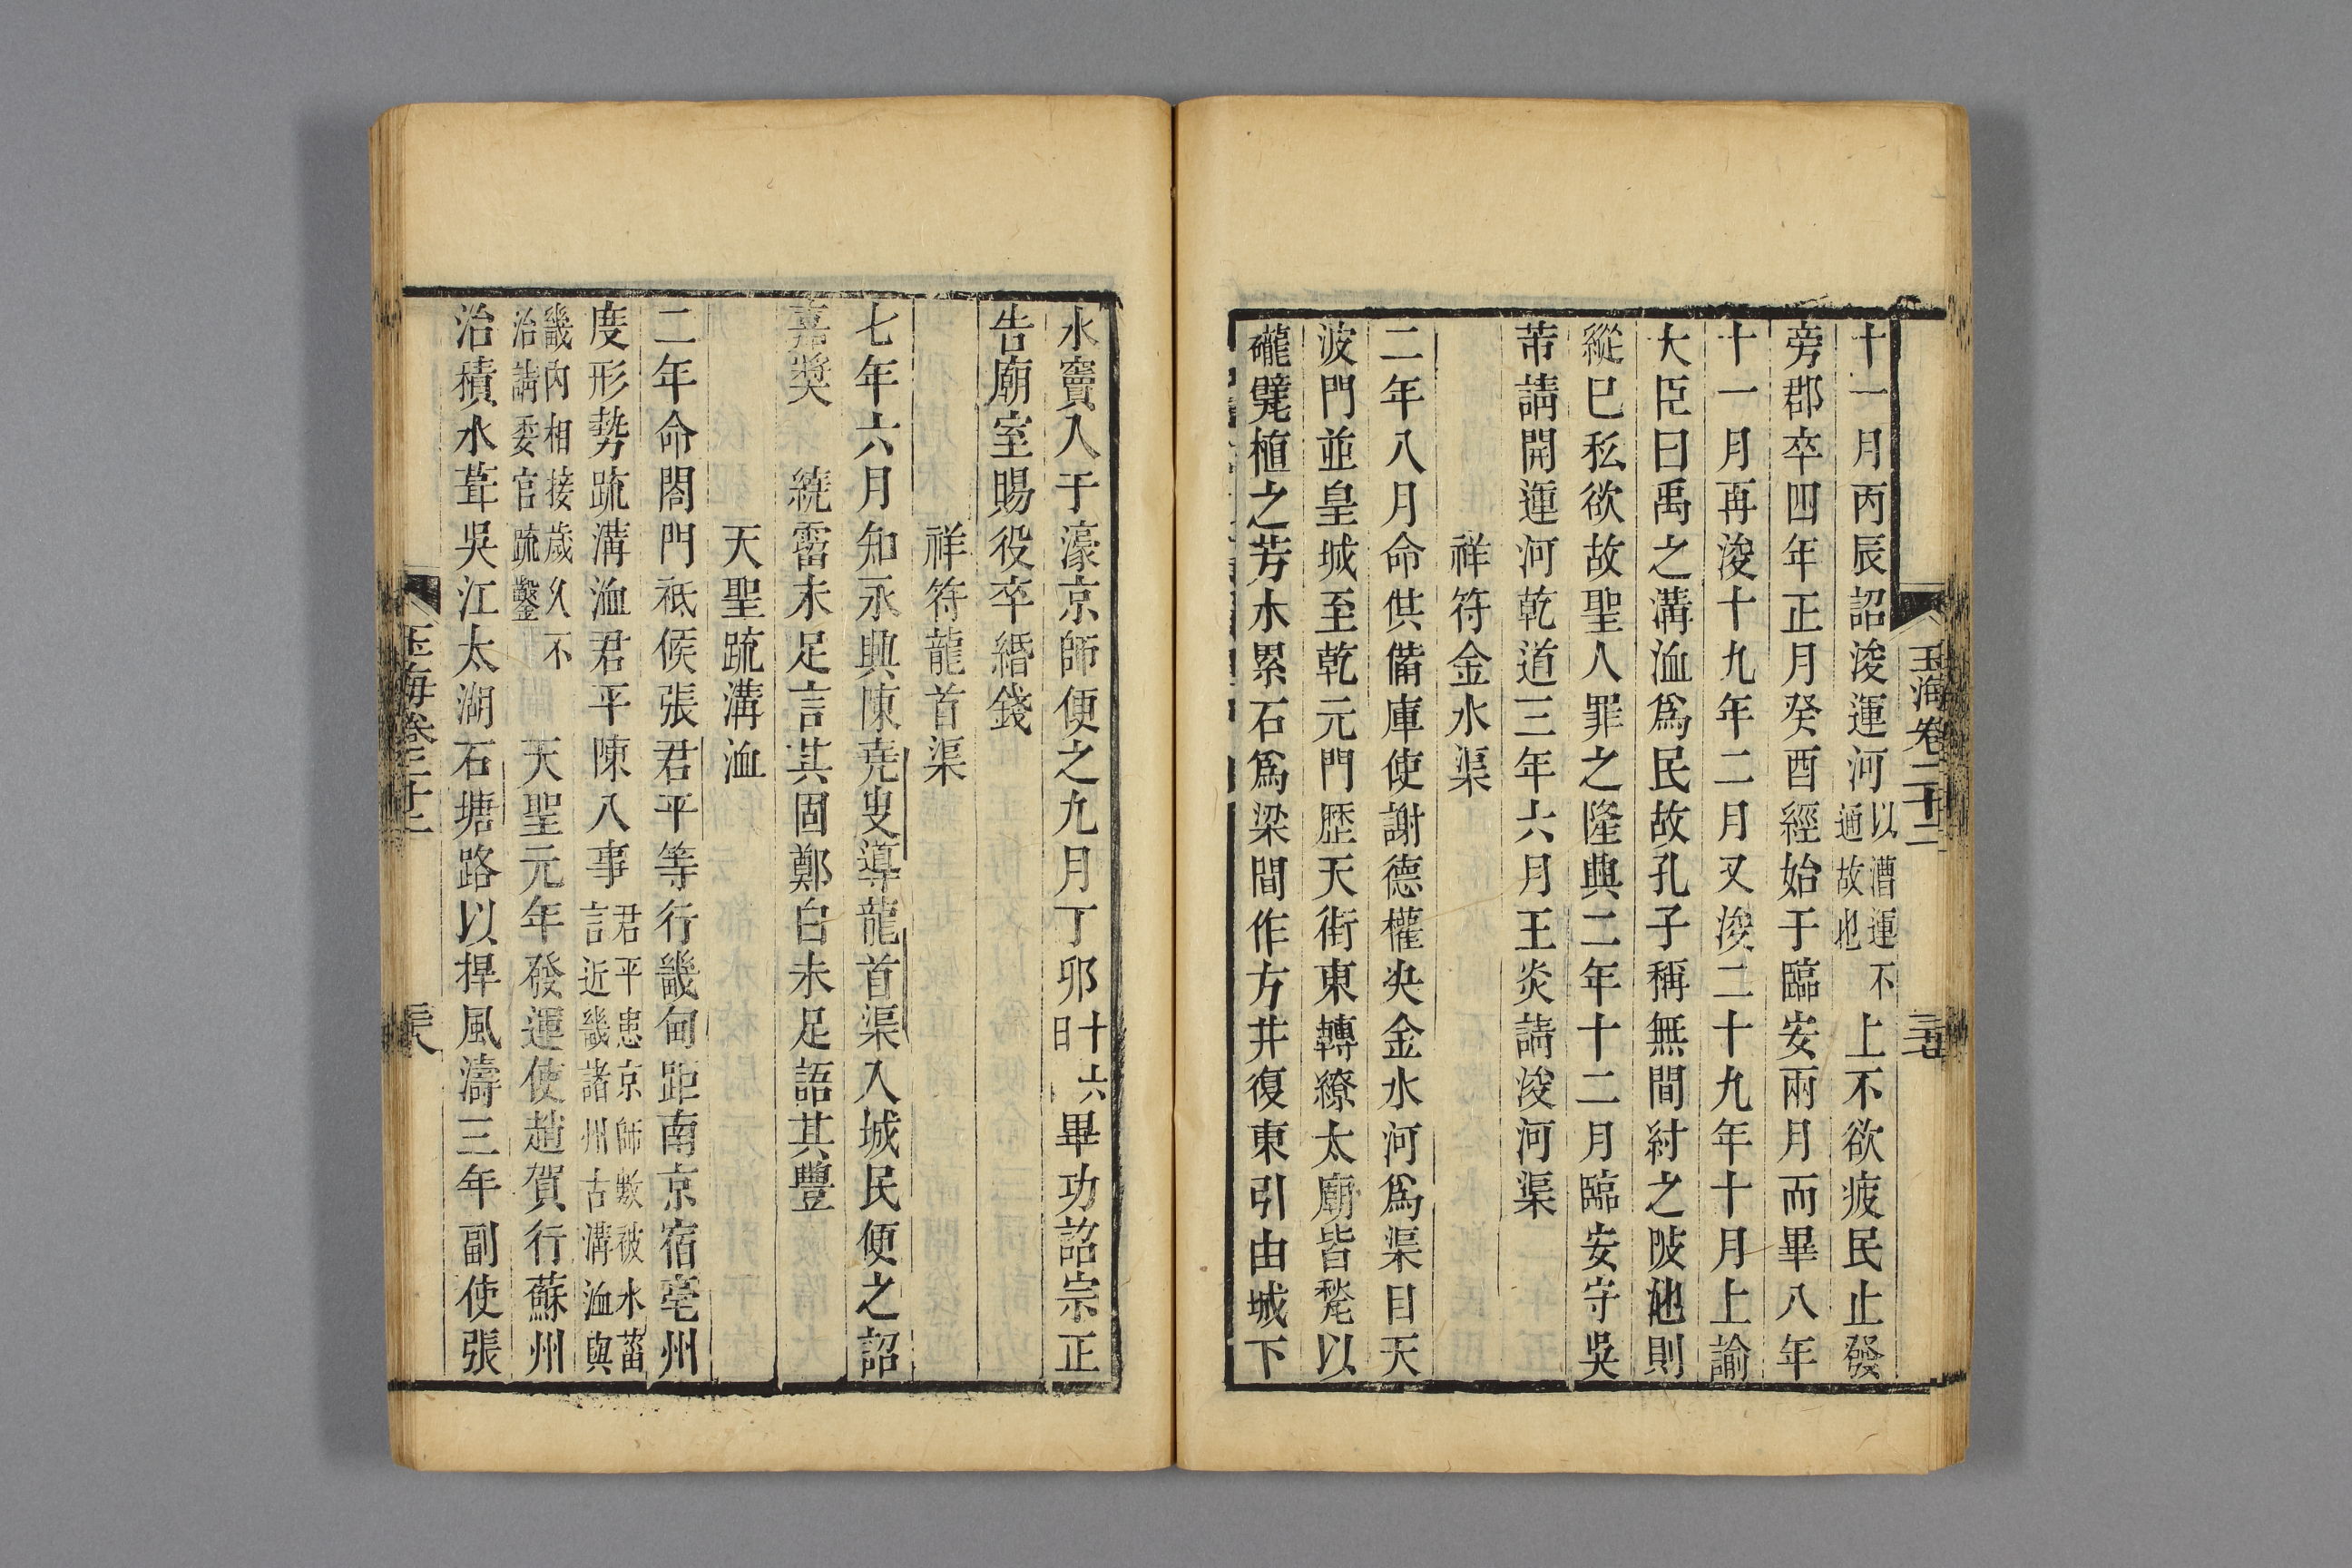 玉海卷二十二
十一月丙辰詔浚運河以漕運不通故也上不欲疲民止發
旁郡卒四年正月癸酉經始于臨安兩月而畢八年
十一月再浚十九年二月又浚二十九年十月上諭
大臣曰禹之溝洫爲民故孔子稱無間紂之陂池則
縱已私欲故聖人罪之隆興二年十二月臨安守吳
芾請開運河乾道三年六月王炎請浚河渠
祥符金水渠
二年八月命供備庫使謝德權決金水河爲渠自天
波門並皇城至乾元門歷天街東轉繚太廟皆甃以
礲甓植之芳木累石爲梁間作方井復東引由城下
水竇入于濠京師便之九月丁卯十六日畢功詔宗正
告廟室賜役卒緡錢
祥符龍首渠
七年六月知永興陳堯叟導龍首渠入城民便之詔
嘉奬 繞霤未足言其固鄭白未足語其豐
天聖疏溝洫
二年命閤門祗候張君平等行畿甸距南京宿亳州
度形勢疏溝洫君平陳八事君平患京師數被水菑言近畿諸州古溝洫與
畿內相接歲久不治請委官疏鑿 天聖元年發運使趙賀行蘇州
治積水葺吳江太湖石塘路以捍風濤三年副使張
玉海卷二十二